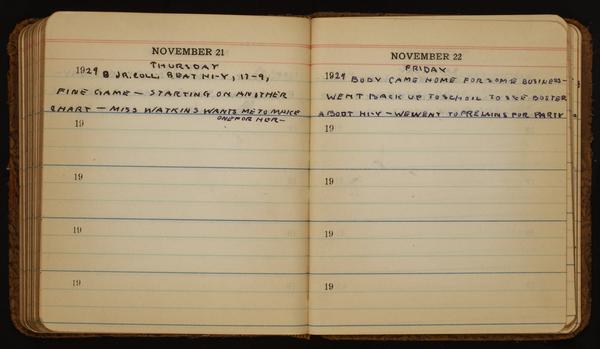 NOVEMBER 21
THURSDAY
1929 B JR. COLL. BEAT HI-Y, 17-9,
FINE GAME - STARTING ON ANOTHER
CHART - MISS WATKINS WANTS ME TO MAKE
ONE FOR HER-
19
19
19
19
NOVEMBER 22
FRIDAY
1929 BODY CAME HOME FOR SOME BUSINESS-
WENT BACK UP TO SCHOOL TO SEE BUSTER
ABOUT HI-Y - WE WENT TO PRELAINS FOR PARTY
19
19
19
19